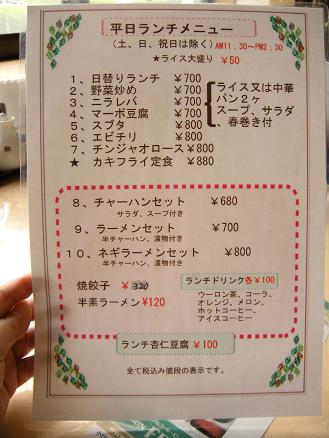 平日ランチメニュー
(土、日、祝日は除く) AM11:30~PM2:30
★ライス大盛り ¥50
1、日替りランチ ¥700
2、野菜炒め ¥700
3、ニラレバ ¥700
4、マーボ豆腐 ¥700
5、スブタ ¥800
6、エビチリ ¥800
7、チンジャオロース¥800
★ カキフライ定食 ¥880
ライス又は中華
パン2ヶ
スープ、サラダ
、春巻き付
8、チャーハンセット ¥680
サラダ、スープ付き
9、ラーメンセット ¥700
半チャーハン、漬物付き
10、ネギラーメンセット ¥800
半チャーハン、漬物付き
焼餃子 ¥320
半素ラーメン¥120
ランチドリンク各¥100
ウーロン茶、コーラ、
オレンジ、メロン、
ホットコーヒー、
アイスコーヒー
ランチ杏仁豆腐 ¥100
全て税込み値段の表示です。